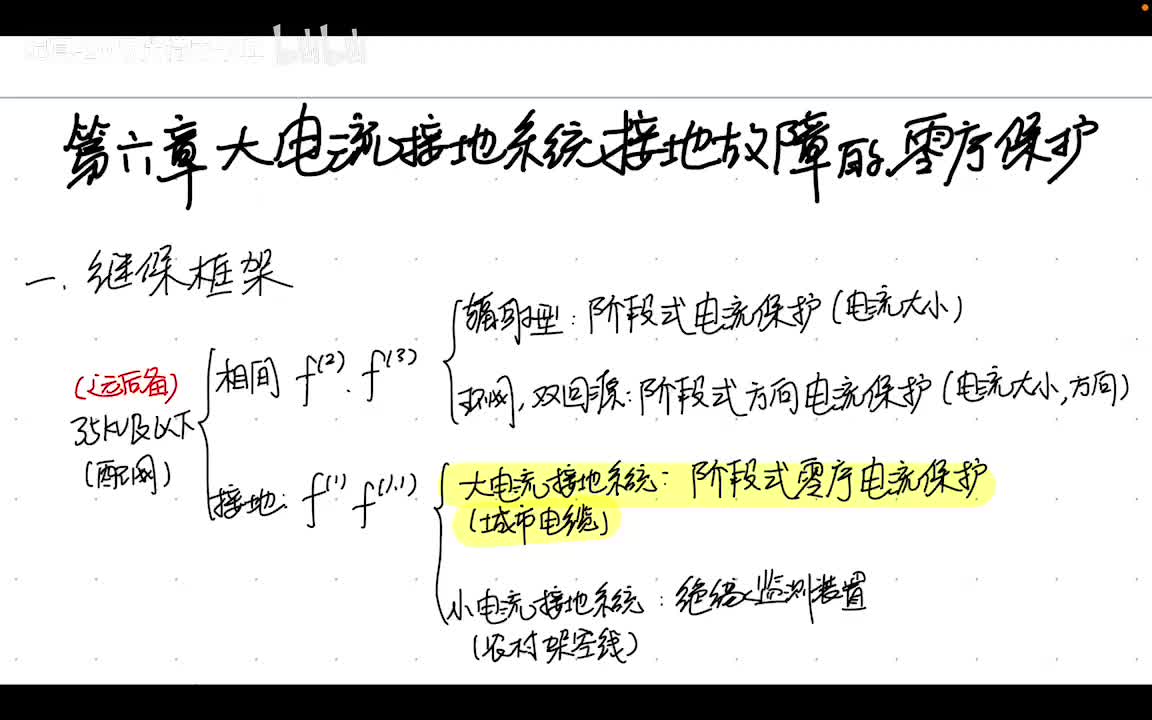 bilibili
第六章 大电流接地系统接地故障的零序保护
一. 继保框架
辐射型: 阶段式电流保护 (电流大小)
相间 f(2). f(3)
(远后备)
环网, 双回源: 阶段式方向电流保护 (电流大小, 方向)
35kV及以下
(配网)
接地: f(1) f(1,1)
大电流接地系统: 阶段式零序电流保护
(城市电缆)
小电流接地系统: 绝缘监测装置
(农村架空线)